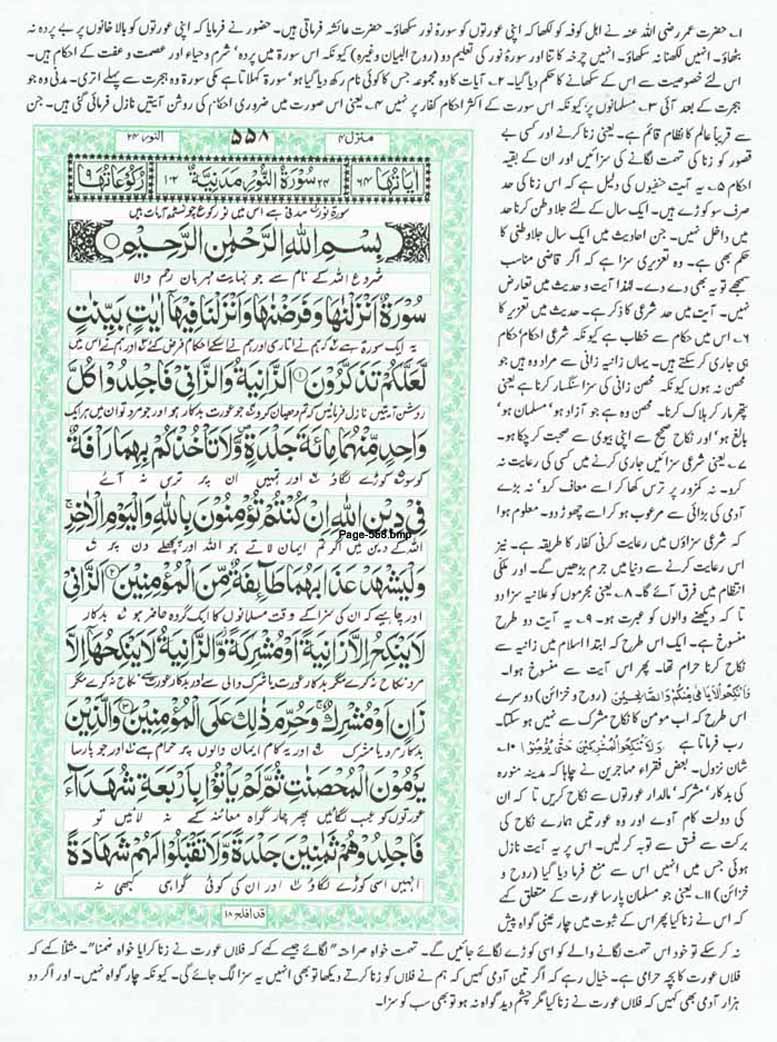 ۱؎ حضرت عمر رضی اللہ عنہ نے اہل کوفہ کو لکھا کہ اپنی عورتوں کو سورۂ نور سکھاؤ۔ حضرت عائشہ فرماتی ہیں۔ حضور نے فرمایا کہ اپنی عورتوں کو بالا خانوں پر بے پردہ نہ
بٹھاؤ۔ انہیں لکھنا نہ سکھاؤ۔ انہیں چرخہ کاتنا اور سورۂ نور کی تعلیم دو (روح البیان وغیرہ) کیونکہ اس سورۃ میں پردہ' شرم و حیاء اور عصمت و عفت کے احکام ہیں۔
اس لئے خصوصیت سے اس کے سکھانے کا حکم دیا گیا۔ ۲؎ آیات کا وہ مجموعہ جس کا کوئی نام رکھ دیا گیا ہو' سورۃ کہلاتا ہے مکی سورۃ وہ ہجرت سے پہلے اتری۔ مدنی وہ جو
ہجرت کے بعد آئی ۳؎ مسلمانوں پر کیونکہ اس سورت کے اکثر احکام کفار پر نہیں ۴؎ یعنی اس صورت میں ضروری احکام کی روشن آیتیں نازل فرمائی گئی ہیں۔ جن
سے قریباً عالم کا نظام قائم ہے۔ یعنی زنا کرنے اور کسی بے
قصور کو زنا کی تہمت لگانے کی سزائیں اور ان کے بقیہ
احکام ۵؎ یہ آیت حنفیوں کی دلیل ہے کہ اس زنا کی حد
صرف سو کوڑے ہیں۔ ایک سال کے لئے جلا وطن کرنا حد
میں داخل نہیں۔ جن احادیث میں ایک سال جلا وطنی کا
حکم بھی ہے۔ وہ تعزیری سزا ہے کہ اگر قاضی مناسب
سمجھے تو یہ بھی دے دے۔ لہٰذا آیت و حدیث میں تعارض
نہیں۔ آیت میں حد شرعی کا ذکر ہے۔ حدیث میں تعزیر کا
۶؎ اس میں حکام سے خطاب ہے کیونکہ شرعی احکام' حکام
ہی جاری کر سکتے ہیں۔ یہاں زانیہ زانی سے مراد وہ ہیں جو
محصن نہ ہوں کیونکہ محصن زانی کی سزا سنگسار کرنا ہے یعنی
پتھر مار کر ہلاک کرنا۔ محصن وہ ہے جو آزاد ہو' مسلمان ہو'
بالغ ہو' اور نکاح صحیح سے اپنی بیوی سے صحبت کر چکا ہو۔
۷؎ یعنی شرعی سزائیں جاری کرنے میں کسی کی رعایت نہ
کرو۔ نہ کمزور پر ترس کھا کر اسے معاف کرو' نہ بڑے
آدمی کی بڑائی سے مرعوب ہو کر اسے چھوڑ دو۔ معلوم ہوا
کہ شرعی سزاؤں میں رعایت کرنی کفار کا طریقہ ہے۔ نیز
اس رعایت کرنے سے دنیا میں جرم بڑھیں گے۔ اور ملکی
انتظام میں فرق آئے گا۔ ۸؎ یعنی مجرموں کو علانیہ سزا دو
تا کہ دیکھنے والوں کو عبرت ہو۔ ۹؎ یہ آیت دو طرح
منسوخ ہے۔ ایک اس طرح کہ ابتدا اسلام میں زانیہ سے
نکاح کرنا حرام تھا۔ پھر اس آیت سے منسوخ ہوا۔
فَانْكِحُوا الْاَيَامٰى مِنْكُمْ وَالصَّالِحِيْنَ (روح و خزائن) دوسرے
اس طرح کہ اب مومن کا نکاح مشرک سے نہیں ہو سکتا۔
رب فرماتا ہے وَلَا تُنْكِحُوا الْمُشْرِكِيْنَ حَتّٰى يُؤْمِنُوْا ۱۰؎
شان نزول۔ بعض فقراء مہاجرین نے چاہا کہ مدینہ منورہ
کی بدکار' مشرکہ' مالدار عورتوں سے نکاح کریں تا کہ ان
کی دولت کام آوے اور وہ عورتیں ہمارے نکاح کی
برکت سے فسق سے توبہ کر لیں۔ اس پر یہ آیت نازل
ہوئی جس میں انہیں اس سے منع فرما دیا گیا (روح و
خزائن) ۱۱؎ یعنی جو مسلمان پارسا عورت کے متعلق کہے
کہ اس نے زنا کیا پھر اس کے ثبوت میں چار عینی گواہ پیش
منزل ۴
۵۵۸
النور ۲۴
اٰیَاتُهَا ۶۴
۲۴ سُوْرَةُ النُّوْرِ مَدَنِيَّةٌ ۱۰۲
رُكُوْعَاتُهَا ۹
سورۃ نور مدنی ہے اس میں نو رکوع چونسٹھ آیات ہیں
بِسْمِ اللهِ الرَّحْمٰنِ الرَّحِيْمِ
شروع اللہ کے نام سے جو نہایت مہربان رحم والا
سُوْرَةٌ اَنْزَلْنٰهَا وَفَرَضْنٰهَا وَاَنْزَلْنَا فِيْهَاۤ اٰيٰتٍۢ بَيِّنٰتٍ
یہ ایک سورۃ ہے کہ ہم نے اتاری اور ہم نے اسکے احکام فرض کئے اور ہم نے اس میں
لَّعَلَّكُمْ تَذَكَّرُوْنَ ۱ اَلزَّانِيَةُ وَالزَّانِيْ فَاجْلِدُوْا كُلَّ
روشن آیتیں نازل فرمائیں کہ تم دھیان کرو جو عورت بدکار ہو اور جو مرد تو ان میں ہر ایک
وَاحِدٍ مِّنْهُمَا مِائَةَ جَلْدَةٍ ۪ وَّلَا تَاْخُذْكُمْ بِهِمَا رَاْفَةٌ
کو سو کوڑے لگاؤ اور تمہیں ان پر ترس نہ آئے
فِيْ دِيْنِ اللهِ اِنْ كُنْتُمْ تُؤْمِنُوْنَ بِاللهِ وَالْيَوْمِ الْاٰخِرِ ۚ
Page-558.bmp
اللہ کے دین میں اگر تم ایمان لاتے ہو اللہ اور پچھلے دن پر
وَلْيَشْهَدْ عَذَابَهُمَا طَآئِفَةٌ مِّنَ الْمُؤْمِنِيْنَ ۲ اَلزَّانِيْ
اور چاہیے کہ ان کی سزا کے وقت مسلمانوں کا ایک گروہ حاضر ہو بدکار
لَا يَنْكِحُ اِلَّا زَانِيَةً اَوْ مُشْرِكَةً ۫ وَّالزَّانِيَةُ لَا يَنْكِحُهَاۤ اِلَّا
مرد نکاح نہ کرے مگر بدکار عورت یا شرک والی سے اور بدکار عورت سے نکاح نہ کرے مگر
زَانٍ اَوْ مُشْرِكٌ ۚ وَحُرِّمَ ذٰلِكَ عَلَى الْمُؤْمِنِيْنَ ۳ وَالَّذِيْنَ
بدکار مرد یا مشرک اور یہ کام ایمان والوں پر حرام ہے اور جو پارسا
يَرْمُوْنَ الْمُحْصَنٰتِ ثُمَّ لَمْ يَاْتُوْا بِاَرْبَعَةِ شُهَدَآءَ
عورتوں کو عیب لگائیں پھر چار گواہ معائنہ کے نہ لائیں تو
فَاجْلِدُوْهُمْ ثَمٰنِيْنَ جَلْدَةً وَّلَا تَقْبَلُوْا لَهُمْ شَهَادَةً
انہیں اسی کوڑے لگاؤ اور ان کی کوئی گواہی کبھی نہ
قد افلح ۱۸
نہ کر سکے تو خود اس تہمت لگانے والے کو اسی کوڑے لگائے جائیں گے۔ تہمت خواہ صراحتہ" لگائے جیسے کہے کہ فلاں عورت نے زنا کرایا خواہ ضمنا"۔ مثلاً کہے کہ
فلاں عورت کا بچہ حرامی ہے۔ خیال رہے کہ اگر تین آدمی کہیں کہ ہم نے فلاں کو زنا کرتے دیکھا تو بھی انہیں یہ سزا لگ جائے گی۔ کیونکہ چار گواہ نہیں۔ اور اگر دو
ہزار آدمی بھی کہیں کہ فلاں عورت نے زنا کیا مگر چشم دید گواہ نہ ہو تو بھی سب کو سزا۔